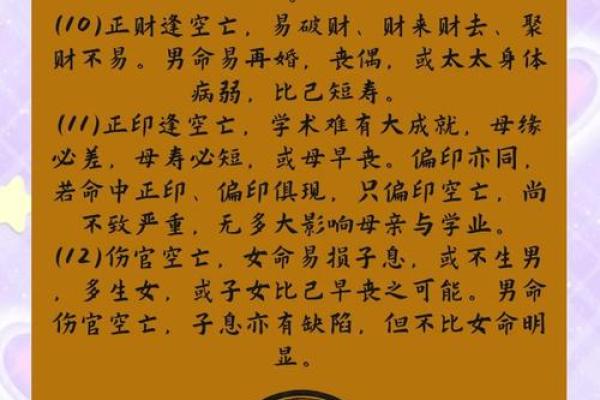 (10)正财逢空亡，易破财、财来财去、聚
财不易。男命易再婚，丧偶，或太太身体
病弱，比己短寿。
(11)正印逢空亡，学术难有大成就，母缘
必差，母寿必短，或母早丧。偏印亦同，
若命中正印、偏印俱现，只偏印空亡，尚
不致严重，无多大影响母亲与学业。
(12)伤官空亡，女命易损子息，或不生男
，多生女，或子女比己早丧之可能。男命
伤官空亡，子息亦有缺陷，但不比女命明
显。